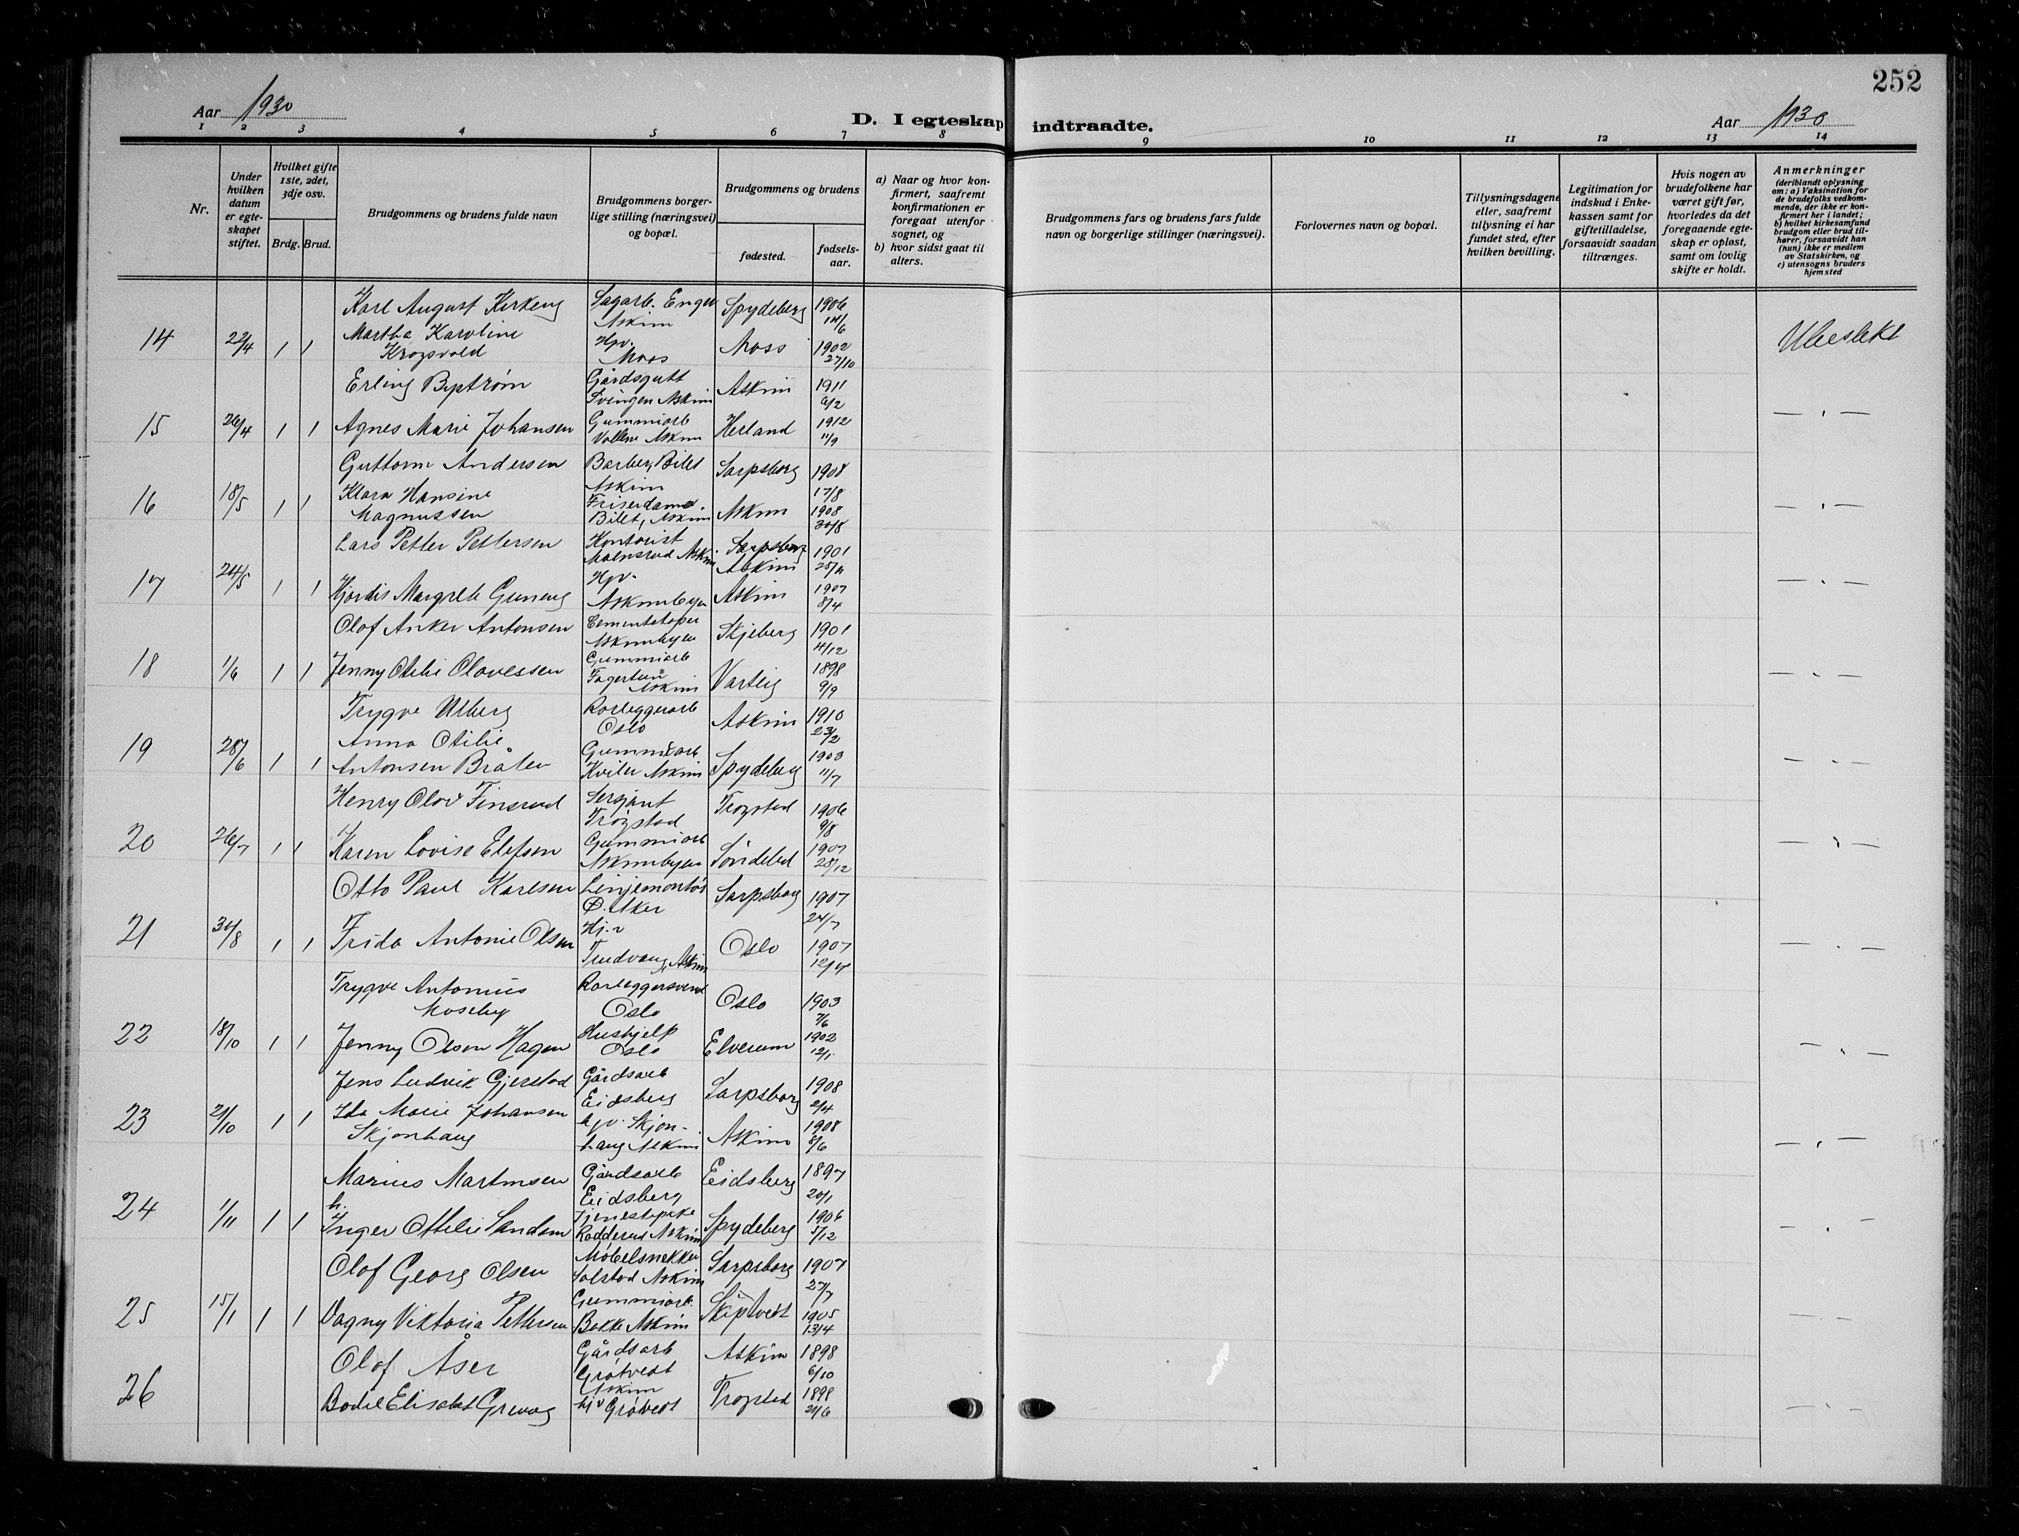 252
Aar 1930
D. I egteskap indtraadte.
Aar 1930
1 2 3 4 5 6 7 8 9 10 11 12 13 14
Nr.
Under hvilken datum er egteskapet stiftet.
Hvilket gifte 1ste, 2det, 3dje osv.
Brdg. Brud.
Brudgommens og brudens fulde navn
Brudgommens borgerlige stilling (næringsvei) og bopæl.
Brudgommens og brudens
fødested.
fødselsaar.
a) Naar og hvor konfirmert, saafremt konfirmationen er foregaat utenfor sognet, og
b) hvor sidst gaat til alters.
Brudgommens fars og brudens fars fulde navn og borgerlige stillinger (næringsvei).
Forlovernes navn og bopæl.
Tillysningsdagene eller, saafremt tillysning ei har fundet sted, efter hvilken bevilling.
Legitimation for indskud i Enkekassen samt for giftetilladelse, forsaavidt saadan tiltrænges.
Hvis nogen av brudefolkene har været gift før, hvorledes da det foregaaende egteskap er opløst, samt om lovlig skifte er holdt.
Anmerkninger
(deriblandt oplysning om: a) Vaksination for de brudefolks vedkommende, der ikke er konfirmert her i landet; b) hvilket kirkesamfund brudgom eller brud tilhører, forsaavidt han (hun) ikke er medlem av Statskirken, og c) utensogns bruders hjemsted
Karl August Kirkeng Sagarb. Enger Askim Spydeberg 1906 14/6
14 22/4 1 1 Martha Karoline Krogsvold Hpv. Moss Moss 1902 27/10 Ubeslekt
Erling Byström Gårdsgutt Svingen Askim Askim 1911 6/2
15 26/4 1 1 Agnes Marie Johansen Gummiarb Vollene Askim Herland 1912 11/9 — " —
Guttorm Andersen Barber, Bilet Askim Sarpsborg 1908 17/8
16 18/5 1 1 Klara Hansine Magnussen Friserdame. Bilet, Askim Askim 1908 30/8 — " —
Lars Petter Pettersen Kontorist Askim Sarpsborg Askim 1901
17 24/5 1 1 Hjørdis Margrete Guneng Hpv. Askimbyen Askim 1907 8/4 — " —
Olof Anker Antonsen Cementstøper Askimbyen Skjeberg 1901 4/12
18 1/6 1 1 Jenny Otilie Olavessen Gummiarb Fagertun Askim Varteig 1898 9/9 — " —
Trygve Ulberg Rørleggerarb Oslo Askim 1910 23/2
19 28/6 1 1 Anna Otilie Antonsen Bråten Gummiarb Kviler Askim Spydeberg 1903 11/7 — " —
Henry Olav Finsrud Sersjant Trøgstad Trogstad 1906 9/8
20 26/7 1 1 Karen Lovise Elefsen Gummiarb Askimbyen Søndeled 1907 28/12 — " —
Otto Paul Karlsen Linjemontør Ø. Aker Sarpsborg 1907 24/7
21 30/8 1 1 Frida Antonie Olsen Hj.v Trudvang, Askim Oslo 1907 — " —
Trygve Antonius Moseby Rørleggersvend Oslo Oslo 1903 7/6
22 18/10 1 1 Jenny Olsen Hagen Hushjelp Oslo Elverum 1902 12/1 — " —
Jens Ludvik Gjerstad Gårdsarb Eidsberg Sarpsborg 1908 2/4
23 21/10 1 1 Ida Marie Johansen Skjonhaug hjv. Skjonhaug Askim Askim 1908 8/6 — " —
Marius Martinsen Gårdsarb Eidsberg Eidsberg 1897 20/1
24 1/11 1 1 Inger Ottilie Sandem Tjenestepike Rodderud Askim Spydeberg 1906 5/12 — " —
Olof Georg Olsen Møbelsnekker Solstad Askim Sarpsborg 1907 27/7
25 15/1 1 1 Dagny Viktoria Pettersen Gummiarb. Bekke Askim Skiptvedt 1905 13/4 — " —
Olof Åser Gårdsarb Grøtvedt Askim Askim 1898 6/10
26 Bodil Elisabet Grevag hjv Grøtvedt Trogstad 1898 — " —